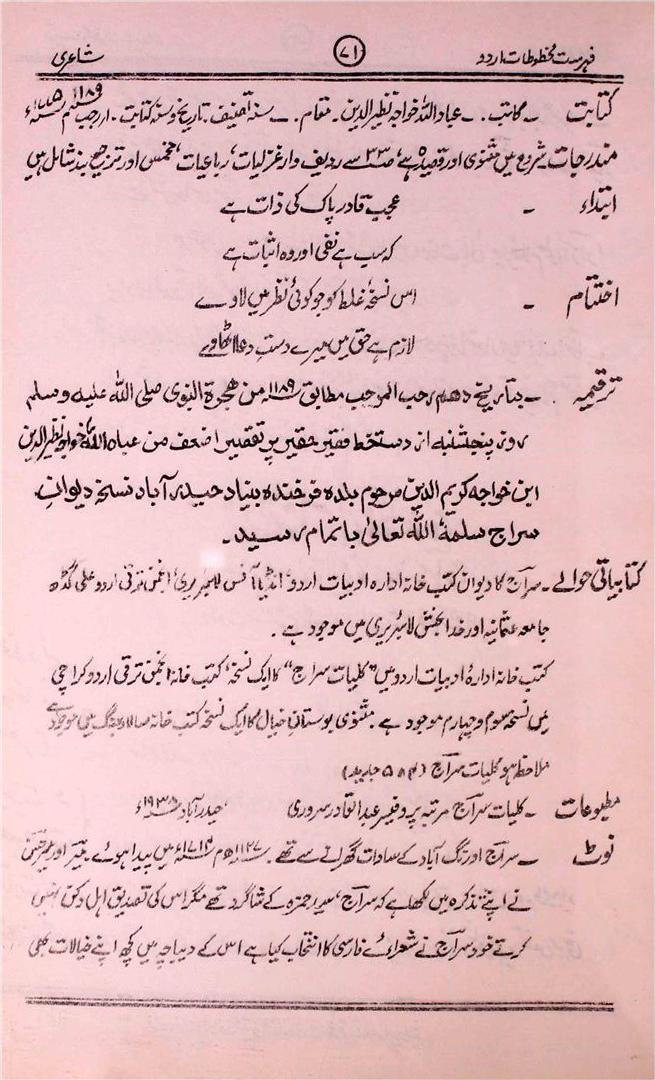 فہرست مخطوطات اردو ۷۱ شاعری
کتابت ۔ کاتب ۔ عباد اللہ خواجہ نظیر الدین ۔ مقام ۔ ۔ سنہ تصنیف ۔ تاریخ و سنہ کتابت ۔ ۱۰ رجب ۱۱۸۹ھ م ۱۷۷۵ء
مندرجات شروع میں مثنوی اور قصیدہ ہے، ص ۳۳ سے ردیف وار غزلیات، رباعیات، مخمس اور ترجیع بند شامل ہیں
ابتداء ۔ عجب قادر پاک کی ذات ہے
کہ سب ہے نفی اور وہ اثبات ہے
اختتام ۔ اس نسخۂ غلط کو جو کوئی نظر میں لاوے
لازم ہے حق میں میرے دست دعا اٹھاوے
ترقیمہ ۔ بتاریخ دہم رجب المرجب مطابق ۱۱۸۹ھ من ھجرۃ النبوی صلی اللہ علیہ وسلم
روز پنجشنبہ از دستخط فقیر حقیر پر تقصیر اضعف من عباد اللہ خواجہ نظیر الدین
ابن خواجہ کریم الدین مرحوم بلدہ فرخندہ بنیاد حیدرآباد نسخۂ دیوان
سراج سلمہٗ اللہ تعالیٰ باتمام رسید ۔
کتابیاتی حوالے ۔ سراج کا دیوان کتب خانہ ادارہ ادبیات اردو، انڈیا آفس لائبریری، انجمن ترقی اردو علی گڈھ
جامعہ عثمانیہ اور خدا بخش لائبریری میں موجود ہے ۔
کتب خانہ ادارۂ ادبیات اردو میں "کلیات سراج" کا ایک نسخہ، کتب خانہ انجمن ترقی اردو کراچی
میں نسخہ سوم و چہارم موجود ہے ۔ مثنوی بوستان خیال کا ایک نسخہ کتب خانہ سالار جنگ میں موجود ہے
ملاحظہ ہو کلیات سراج
مطبوعات ۔ کلیات سراج مرتبہ پروفیسر عبدالقادر سروری حیدرآباد ۱۹۳۸ء
نوٹ ۔ سراج اورنگ آباد کے سادات گھرانے سے تھے ۔ ۱۱۲۷ھ م ۱۷۱۴ء میں پیدا ہوئے ۔ میر اور میر حسن
نے اپنے تذکرہ میں لکھا ہے کہ سراج، سید حمزہ کے شاگرد تھے مگر اس کی تصدیق اہل دکن نہیں
کرتے خود سراج نے شعرائے فارسی کا انتخاب کیا ہے اس کے دیباچہ میں کچھ اپنے خیالات بھی